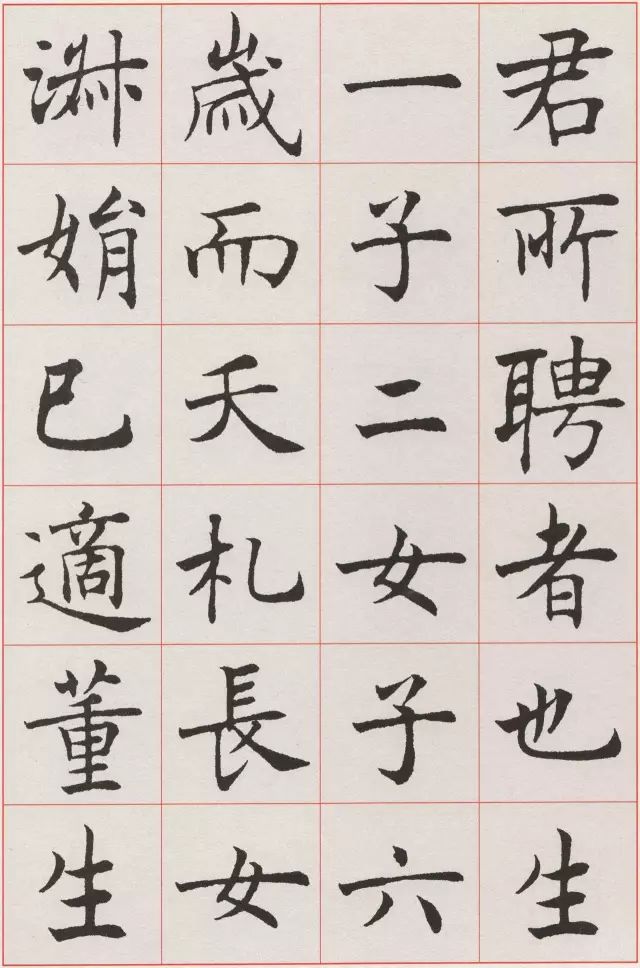 君所聘者也生
一子二女子六
歲而夭札長女
娟已適董生